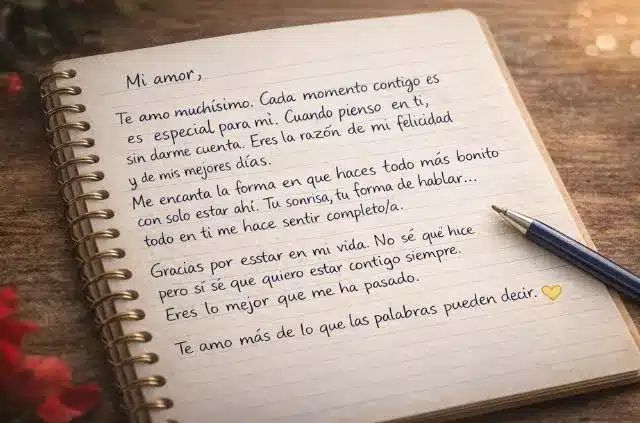 Mi amor,
Te amo muchísimo. Cada momento contigo es
es especial para mì. Cuando pienso en ti,
sin darme cuenta. Eres la razón de mi felicidad
y de mis mejores días.
Me encanta la forma en que haces todo más bonito
con solo estar ahí. Tu sonrisa, tu forma de hablar...
todo en ti me hace sentir completo/a.
Gracias por esstar en mi vida. No sé qué hice
pero sí sé que quiero estar contigo siempre.
Eres lo mejor que me ha pasado.
Te amo más de lo que las palabras pueden decir. 💛